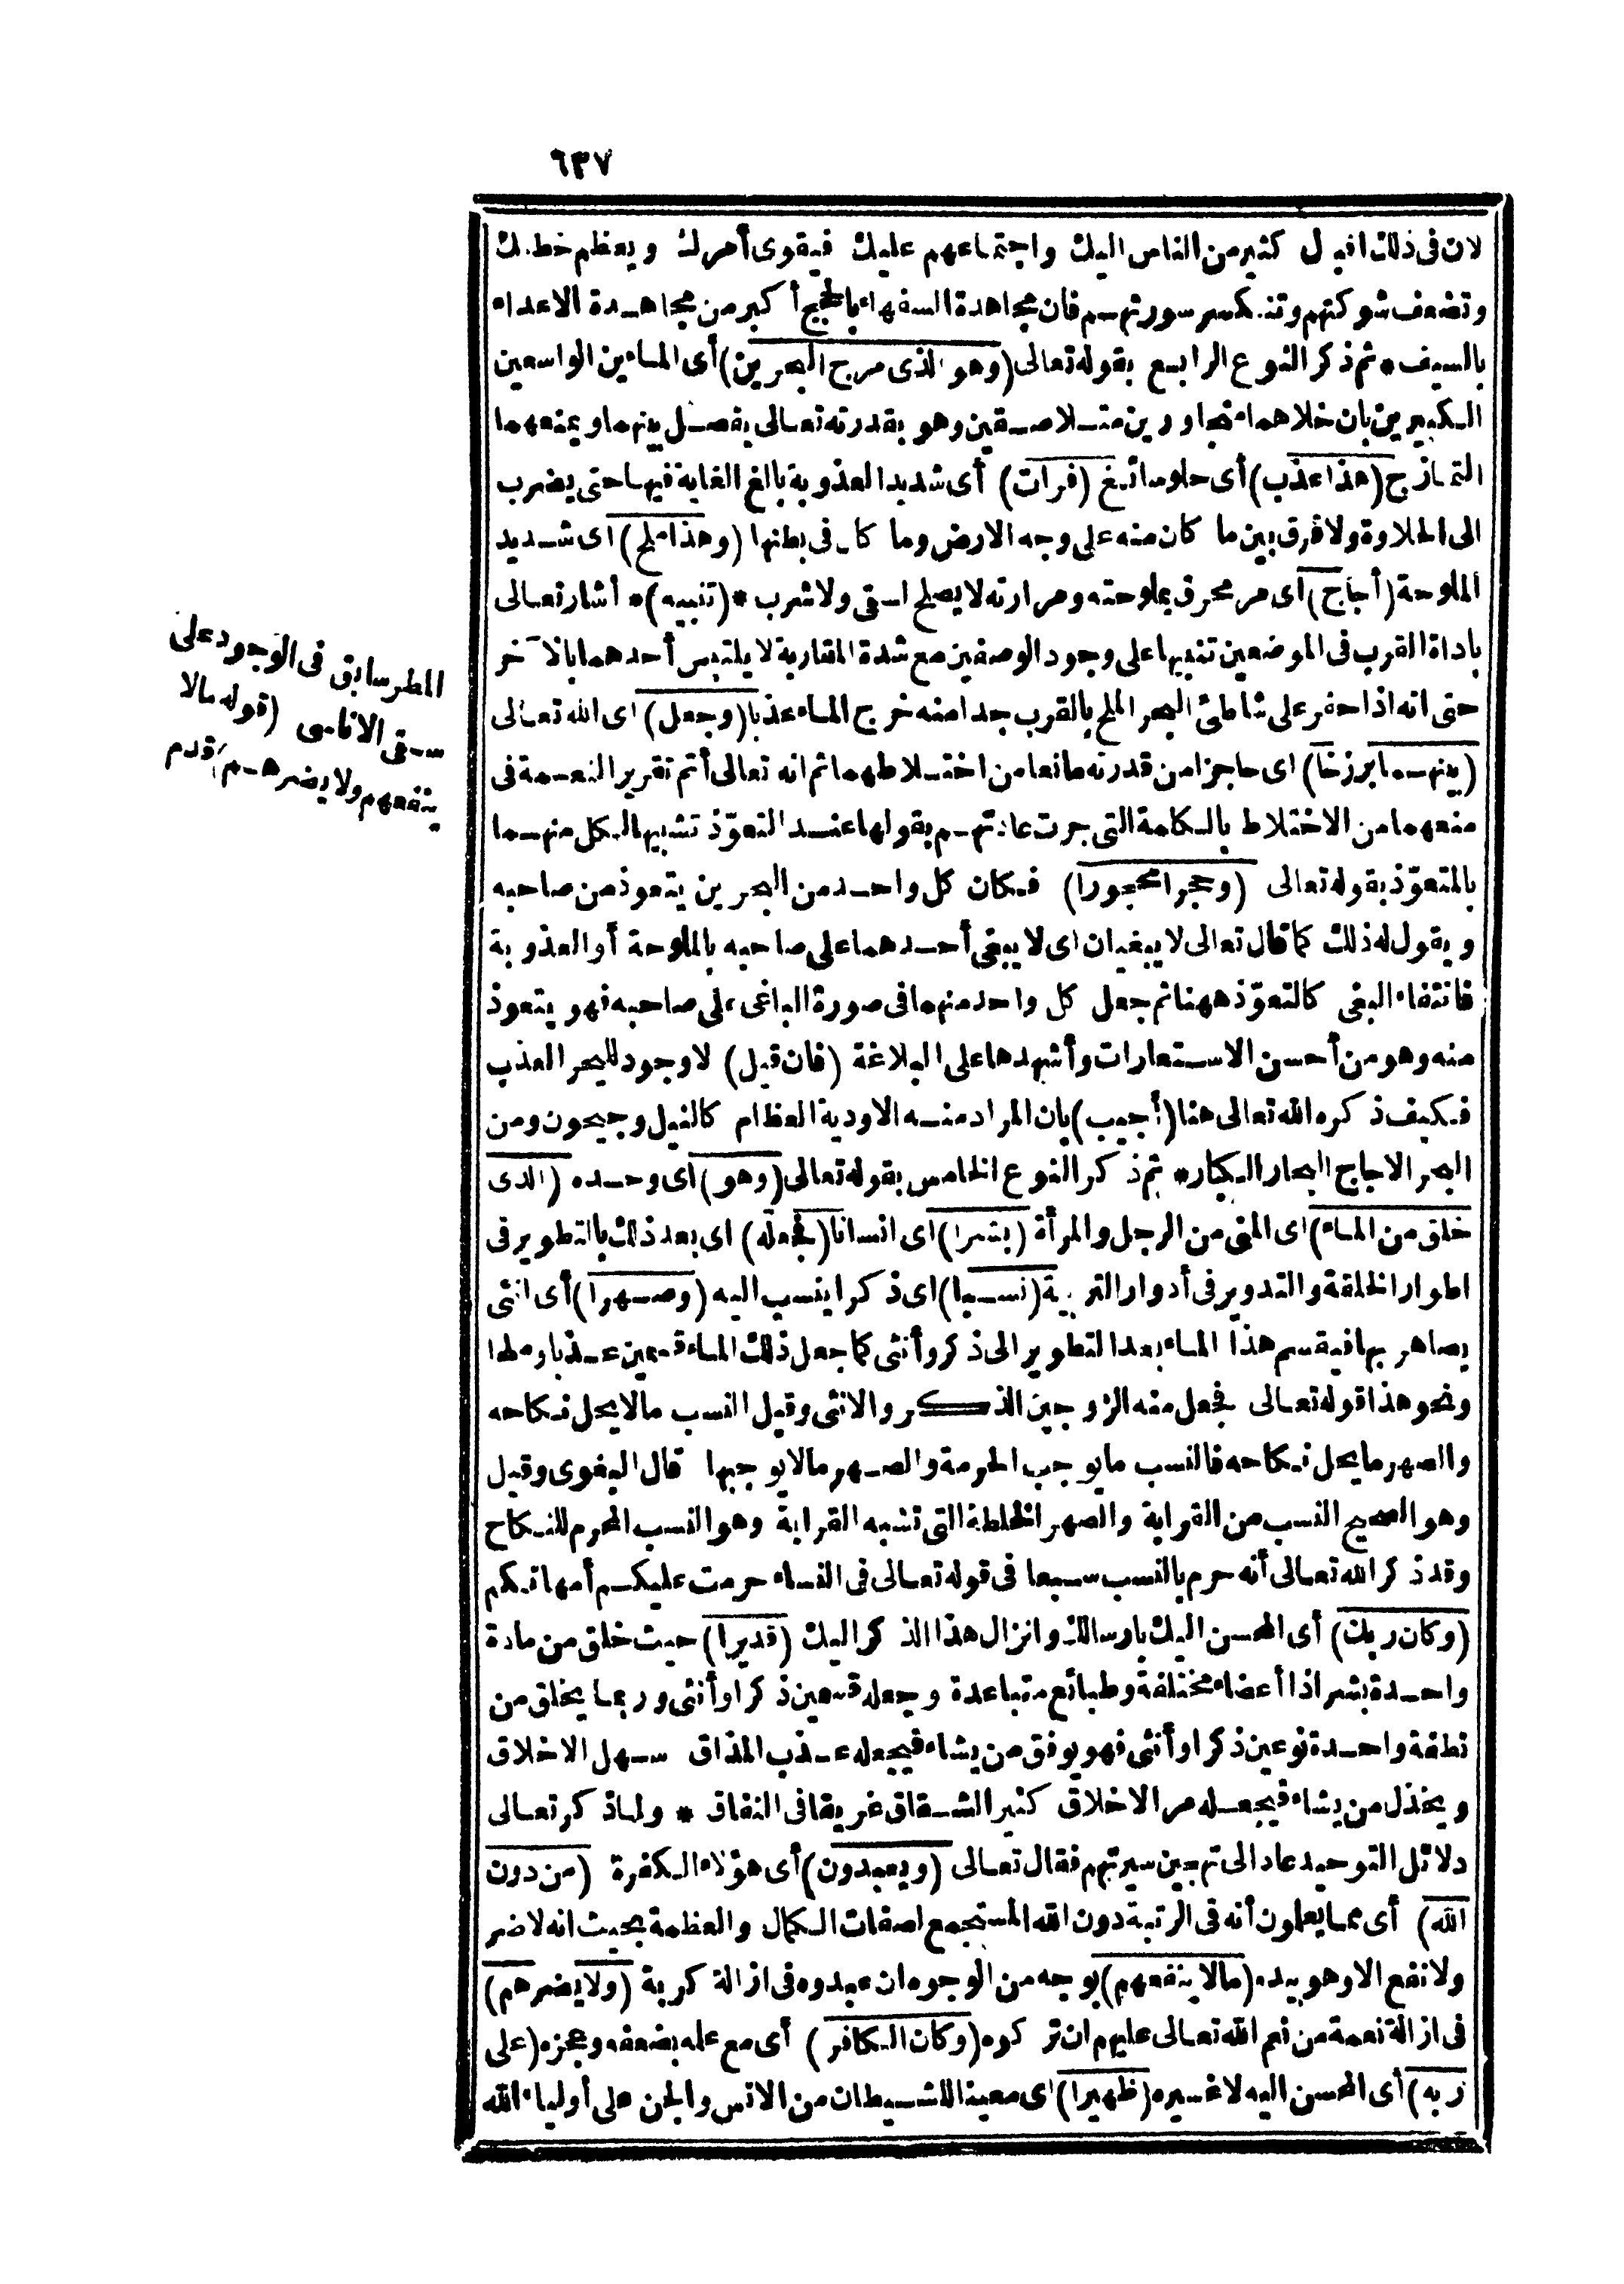 ٦٣٧
لان فى ذلك اقبال كثير من الناس اليك واجتماعهم عليك فيقوى أمرك ويعظم خطبك
وتضعف شوكتهم وتنكسر سورتهم فان مجاهدة السفهاء بالحجج أكبر من مجاهدة الاعداء
بالسيف * ثم ذكر النوع الرابع بقوله تعالى (وهو الذى مرج البحرين) أى الماءين الواسعين
الكبيرين بان خلاهما متجاورين متلاصقين وهو بقدرته تعالى يفصل بينهما ويمنعهما
التمازج (هذا عذب) أى حلو سائغ (فرات) أى شديد العذوبة بالغ الغاية فيها حتى يضرب
الى الحلاوة ولا فرق بين ما كان منه على وجه الارض وما كان فى بطنها (وهذا ملح) اى شديد
الملوحة (أجاج) اى مر محرق بملوحته ومرارته لا يصلح لسقى ولا شرب * (تنبيه) * أشار تعالى
باداة القرب فى الموضعين تنبيها على وجود الوصفين مع شدة المقاربة لا يلتبس أحدهما بالآخر
حتى انه اذا حفر على شاطئ البحر الملح بالقرب جدا منه خرج الماء عذبا (وجعل) اى الله تعالى
(بينهما برزخا) اى حاجزا من قدرته مانعا من اختلاطهما ثم انه تعالى أتم تقرير النعمة فى
منعهما من الاختلاط بالكلمة التى جرت عادتهم بقولها عند التعوّذ تشبيها لكل منهما
بالمتعوّذ بقوله تعالى (وحجرا محجورا) فكان كل واحد من البحرين يتعوذ من صاحبه
ويقول له ذلك كما قال تعالى لا يبغيان اى لا يبغى أحدهما على صاحبه بالملوحة أو العذوبة
فانتفاء البغى كالتعوّذ ههنا ثم جعل كل واحد منهما فى صورة الباغى على صاحبه فهو يتعوذ
منه وهو من أحسن الاستعارات وأشهدها على البلاغة (فان قيل) لا وجود للبحر العذب
فكيف ذكره الله تعالى هنا (أجيب) بان المراد منه الاودية العظام كالنيل وجيحون ومن
البحر الاجاج البحار الكبار * ثم ذكر النوع الخامس بقوله تعالى (وهو) اى وحده (الذى
خلق من الماء) اى المنى من الرجل والمرأة (بشرا) اى انسانا (فجعله) اى بعد ذلك بالتطوير فى
اطوار الخلقة والتدوير فى أدوار التربية (نسبا) اى ذكرا ينسب اليه (وصهرا) أى انثى
يصاهر بها فيقسم هذا الماء بعد التطوير الى ذكر وأنثى كما جعل ذلك الماء قسمين عذبا وملحا
ونحو هذا قوله تعالى فجعل منه الزوجين الذكر والانثى وقيل النسب مالا يحل نكاحه
والصهر ما يحل نكاحه فالنسب ما يوجب الحرمة والصهر مالا يوجبها قال البغوى وقيل
وهو الصحيح النسب من القرابة والصهر الخلطة التى تشبه القرابة وهو النسب المحرم للنكاح
وقد ذكر الله تعالى أنه حرم بالنسب سبعا فى قوله تعالى فى النساء حرمت عليكم أمهاتكم
(وكان ربك) أى المحسن اليك بارسالك وانزال هذا الذكر اليك (قديرا) حيث خلق من مادة
واحدة بشرا ذا أعضاء مختلفة وطبائع متباعدة وجعله قسمين ذكرا وأنثى وربما يخلق من
نطفة واحدة نوعين ذكرا وأنثى فهو يوفق من يشاء فيجعله عذب المذاق سهل الاخلاق
ويخذل من يشاء فيجعله مر الاخلاق كثير الشقاق غريقا فى النفاق * ولما ذكر تعالى
دلائل التوحيد عاد الى تهجين سيرتهم فقال تعالى (ويعبدون) أى هؤلاء الكفرة (من دون
الله) أى مما يعلمون أنه فى الرتبة دون الله المستجمع لصفات الكمال والعظمة بحيث انه لا ضر
ولا نفع الا وهو بيده (مالا ينفعهم) بوجه من الوجوه ان عبدوه فى ازالة كربة (ولا يضرهم)
فى ازالة نعمة من نعم الله تعالى عليهم ان تركوه (وكان الكافر) أى مع علمه بضعفه وعجزه (على
ربه) أى المحسن اليه لا غيره (ظهيرا) اى معينا للشيطان من الانس والجن على أولياء الله
المطر سابق فى الوجود على
سقى الاناسى (قوله مالا
ينفعهم ولا يضرهم) قدم